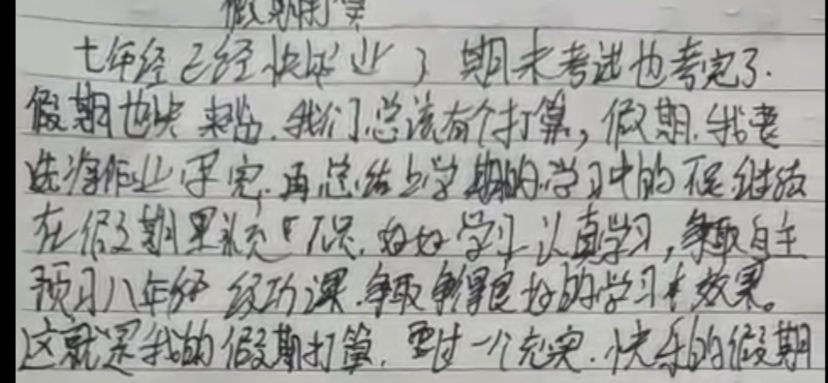 假期打算
七年经已经快毕业了期末考试也考完了.
假期也快来临.我们总该有个打算,假期.我要
先将作业写完.再总结上学期的学习中的不足继续
在假期里补不足.好好学习认真学习,争取自主
预习八年级功课.争取争得良好的学习效果。
这就是我的假期打算.要过一个充实.快乐的假期